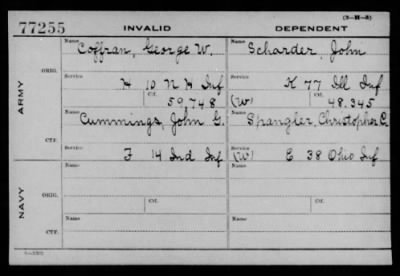 (3-H-5)
77255 INVALID DEPENDENT
Name Coffran, George W. Name Scharder, John
ARMY
ORIG.
Service H 10 N H Inf Service K 77 Ill Inf
Ctf. 59,748 (W) Ctf. 48.345
Name Cummings, John G. Name Spangler, Christopher C.
CTF.
Service F 14 Ind Inf Service (W) E 38 Ohio Inf
NAVY
Name Name
ORIG.
Service Service
Ctf. Ctf.
Name Name
CTF.
Service Service